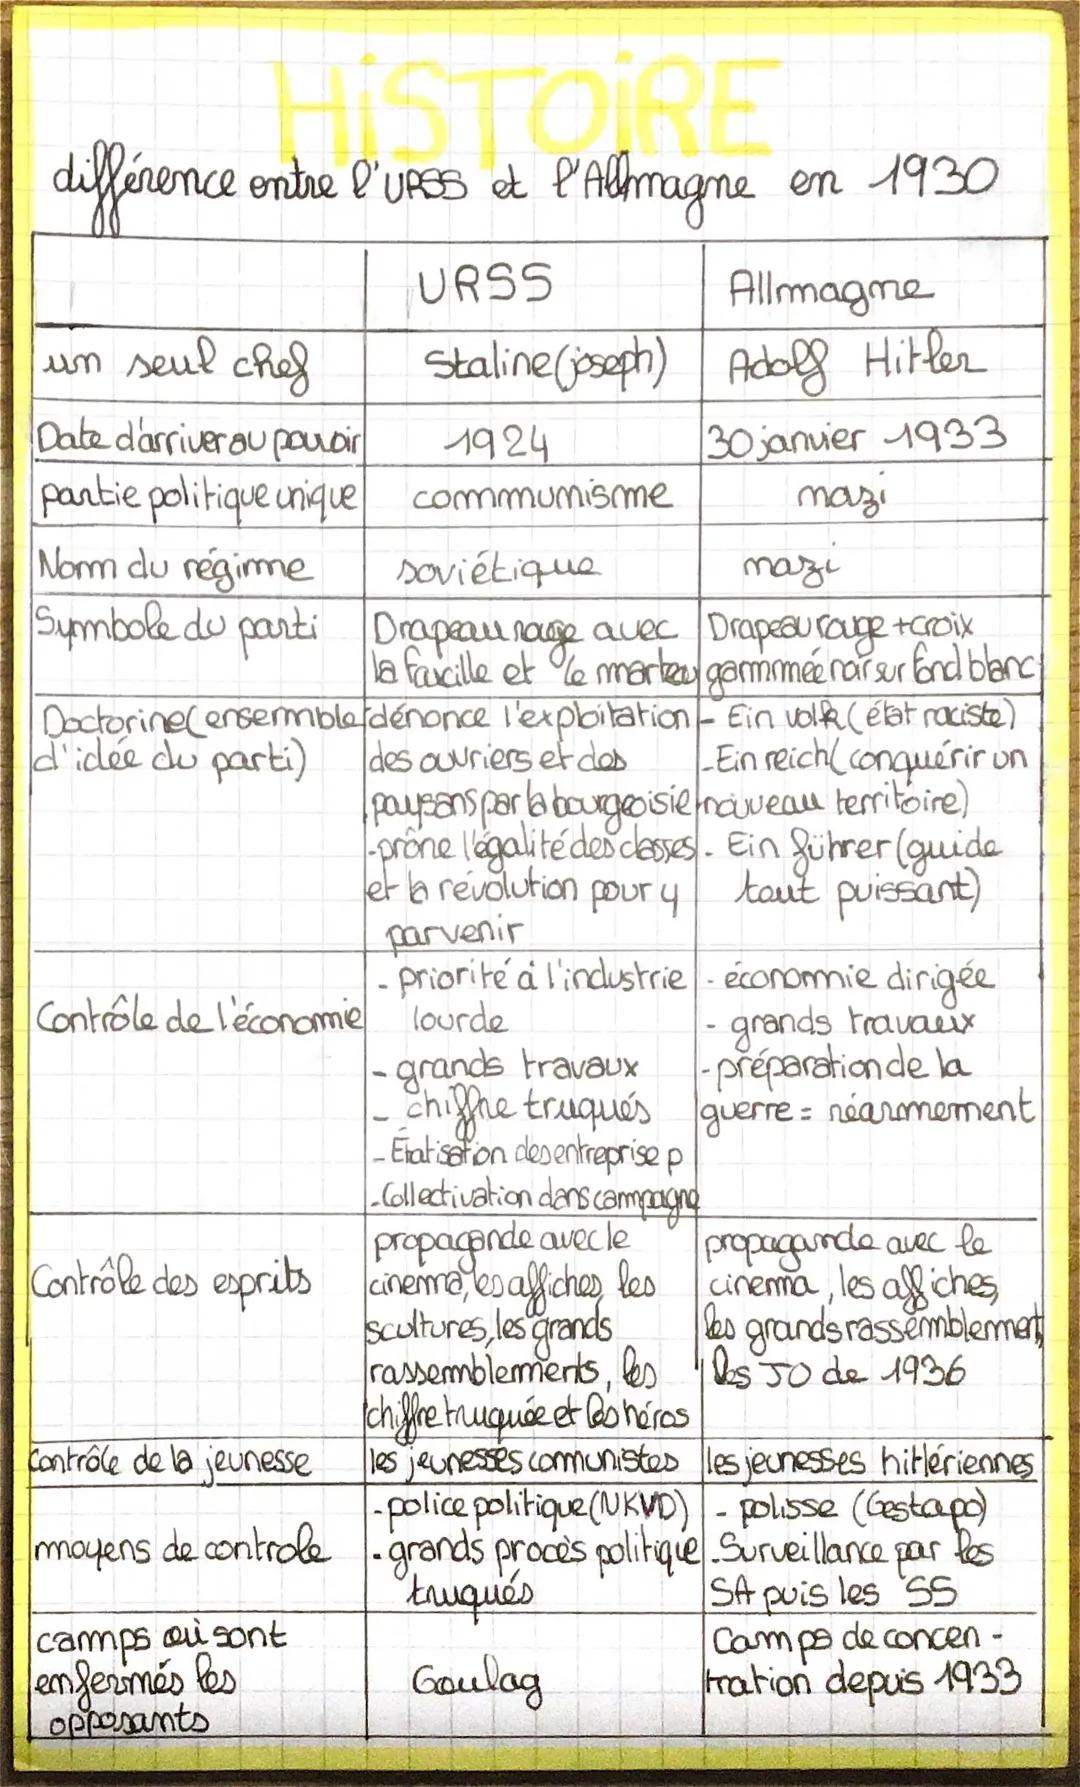 HiSTOiRE
différence entre l'URSS et l'Allmagne en 1930
URSS
Allmagne
un seul chef
Staline (joseph)
Adolf Hitler
Date d'arriver au pouvoir
1924
30 janvier 1933
partie politique unique
communisme
nazi
Nom du régime
soviétique
nazi
Symbole du parti
Drapeau rouge avec
la faucille et le marteau
Drapeau rouge + croix
gammée noir sur fond blanc
Doctorine (ensemble
d'idée du parti)
dénonce l'exploitation
des ouvriers et des
paysans par la bourgeoisie
- prône l'égalité des classes
et la révolution pour y
parvenir
- Ein volk (état raciste)
- Ein reich (conquérir un
nouveau territoire)
- Ein führer (guide
tout puissant)
Contrôle de l'économie
- priorité à l'industrie
lourde
- grands travaux
- chiffre truqués
- Étatisation des entreprise p
- Collectivation dans campagne
- économie dirigée
- grands travaux
- préparation de la
guerre = réarmement
Contrôle des esprits
propagande avec le
cinema, les affiches, les
scultures, les grands
rassemblements, les
chiffre truquée et les héros
propagande avec le
cinema, les affiches,
les grands rassemblement,
les JO de 1936
Contrôle de la jeunesse
les jeunesses communistes
les jeunesses hitlériennes
moyens de controle
- police politique (NKVD)
- grands procès politique
truqués
- polisse (Gestapo)
- Surveillance par les
SA puis les SS
camps où sont
enfermés les
opposants
Goulag
Camps de concen-
tration depuis 1933